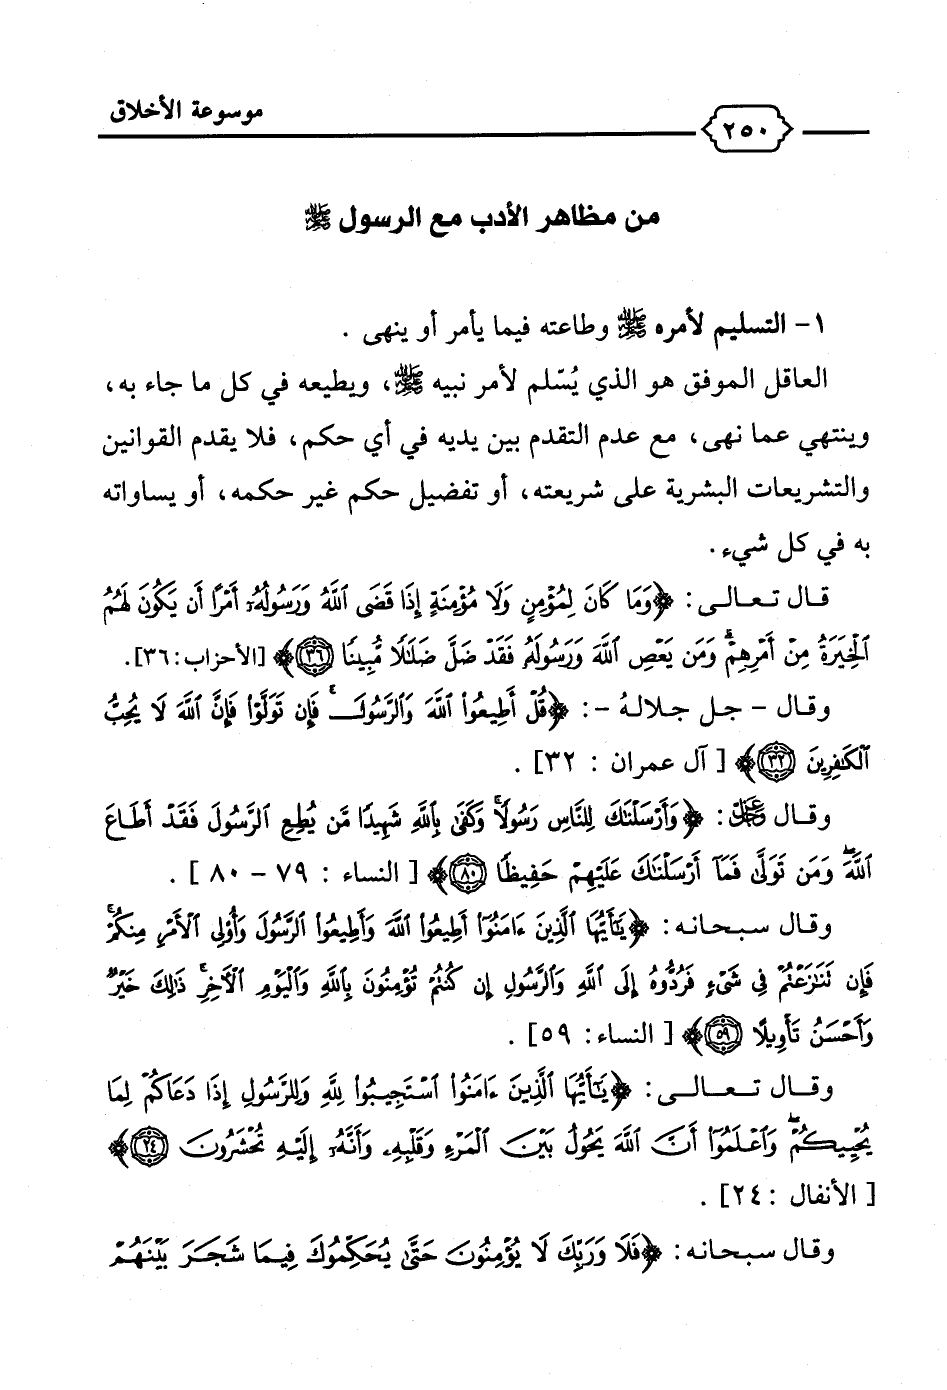 موسوعة الأخلاق
٢٥٠
من مظاهر الأدب مع الرسول ﷺ
١- التسليم لأمره ﷺ وطاعته فيما يأمر أو ينهى .
العاقل الموفق هو الذي يُسّلم لأمر نبيه ﷺ، ويطيعه في كل ما جاء به،
وينتهي عما نهى، مع عدم التقدم بين يديه في أي حكم، فلا يقدم القوانين
والتشريعات البشرية على شريعته، أو تفضيل حكم غير حكمه، أو يساواته
به في كل شيء.
قال تعالى: ﴿وَمَا كَانَ لِمُؤْمِنٍ وَلَا مُؤْمِنَةٍ إِذَا قَضَى ٱللَّهُ وَرَسُولُهُۥٓ أَمْرًا أَن يَكُونَ لَهُمُ
ٱلْخِيَرَةُ مِنْ أَمْرِهِمْ ۗ وَمَن يَعْصِ ٱللَّهَ وَرَسُولَهُۥ فَقَدْ ضَلَّ ضَلَٰلًا مُّبِينًا ۝٣٦﴾ [الأحزاب:٣٦].
وقال - جل جلالهُ -: ﴿قُلْ أَطِيعُوا۟ ٱللَّهَ وَٱلرَّسُولَ ۖ فَإِن تَوَلَّوْا۟ فَإِنَّ ٱللَّهَ لَا يُحِبُّ
ٱلْكَٰفِرِينَ ۝٣٢﴾ [ آل عمران : ٣٢] .
وقال ﷿: ﴿وَأَرْسَلْنَٰكَ لِلنَّاسِ رَسُولًا ۚ وَكَفَىٰ بِٱللَّهِ شَهِيدًا مَّن يُطِعِ ٱلرَّسُولَ فَقَدْ أَطَاعَ
ٱللَّهَ ۖ وَمَن تَوَلَّىٰ فَمَآ أَرْسَلْنَٰكَ عَلَيْهِمْ حَفِيظًا ۝٨٠﴾ [ النساء : ٧٩ - ٨٠ ] .
وقال سبحانه: ﴿يَٰٓأَيُّهَا ٱلَّذِينَ ءَامَنُوٓا۟ أَطِيعُوا۟ ٱللَّهَ وَأَطِيعُوا۟ ٱلرَّسُولَ وَأُو۟لِى ٱلْأَمْرِ مِنكُمْ ۖ
فَإِن تَنَٰزَعْتُمْ فِى شَىْءٍ فَرُدُّوهُ إِلَى ٱللَّهِ وَٱلرَّسُولِ إِن كُنتُمْ تُؤْمِنُونَ بِٱللَّهِ وَٱلْيَوْمِ ٱلْءَاخِرِ ۚ ذَٰلِكَ خَيْرٌ
وَأَحْسَنُ تَأْوِيلًا ۝٥٩﴾ [ النساء: ٥٩] .
وقال تعالى: ﴿يَٰٓأَيُّهَا ٱلَّذِينَ ءَامَنُوا۟ ٱسْتَجِيبُوا۟ لِلَّهِ وَلِلرَّسُولِ إِذَا دَعَاكُمْ لِمَا
يُحْيِيكُمْ ۖ وَٱعْلَمُوٓا۟ أَنَّ ٱللَّهَ يَحُولُ بَيْنَ ٱلْمَرْءِ وَقَلْبِهِۦ وَأَنَّهُۥٓ إِلَيْهِ تُحْشَرُونَ ۝٢٤﴾
[ الأنفال :٢٤] .
وقال سبحانه: ﴿فَلَا وَرَبِّكَ لَا يُؤْمِنُونَ حَتَّىٰ يُحَكِّمُوكَ فِيمَا شَجَرَ بَيْنَهُمْ